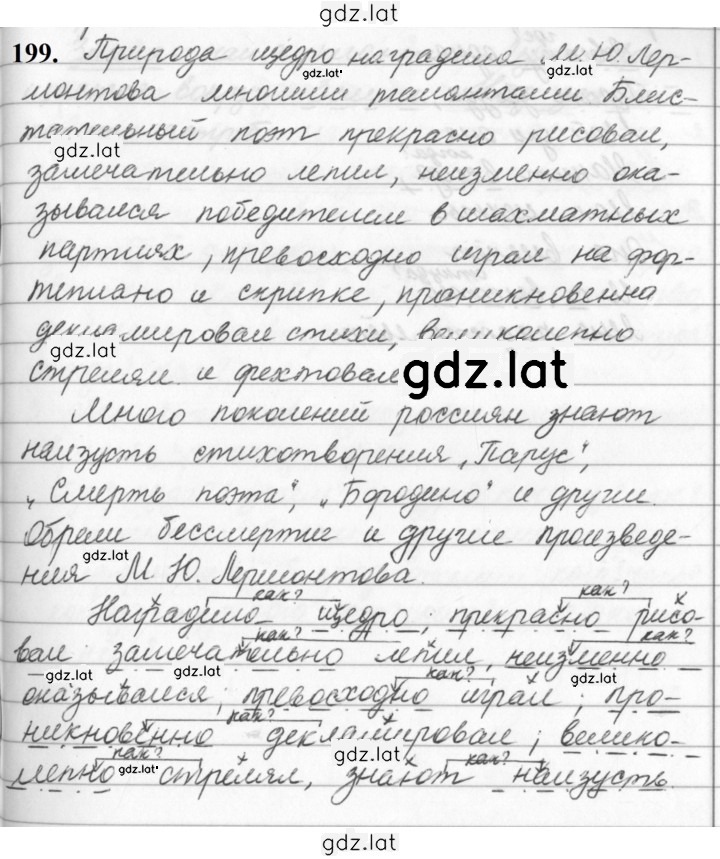 gdz.lat
199. Природа щедро наградила М. Ю. Лер-
gdz.lat
монтова многими талантами. Блис-
тательный поэт прекрасно рисовал,
gdz.lat
замечательно лепил, неизменно ока-
зывался победителем в шахматных
партиях, превосходно играл на фор-
туда?
тепиано и скрипке, проникновенно
декламировал стихи, великолепно
gdz.lat
стрелял и фехтовал
gdz.lat
Много поколений россиян знают
наизусть стихотворения „Парус",
„Смерть поэта", „Бородино" и другие.
Обрели бессмертие и другие произведе-
gdz.lat
ния М. Ю. Лермонтова.
как? как?
Наградила щедро, прекрасно рисо-
gdz.lat
как? как?
вал, замечательно лепил, неизменно
gdz.lat gdz.lat
как?
оказывался, превосходно играл, про-
как?
никновенно декламировал, велико-
gdz.lat
как? как?
лепно стрелял, знают наизусть.
gdz.lat
gdz.lat